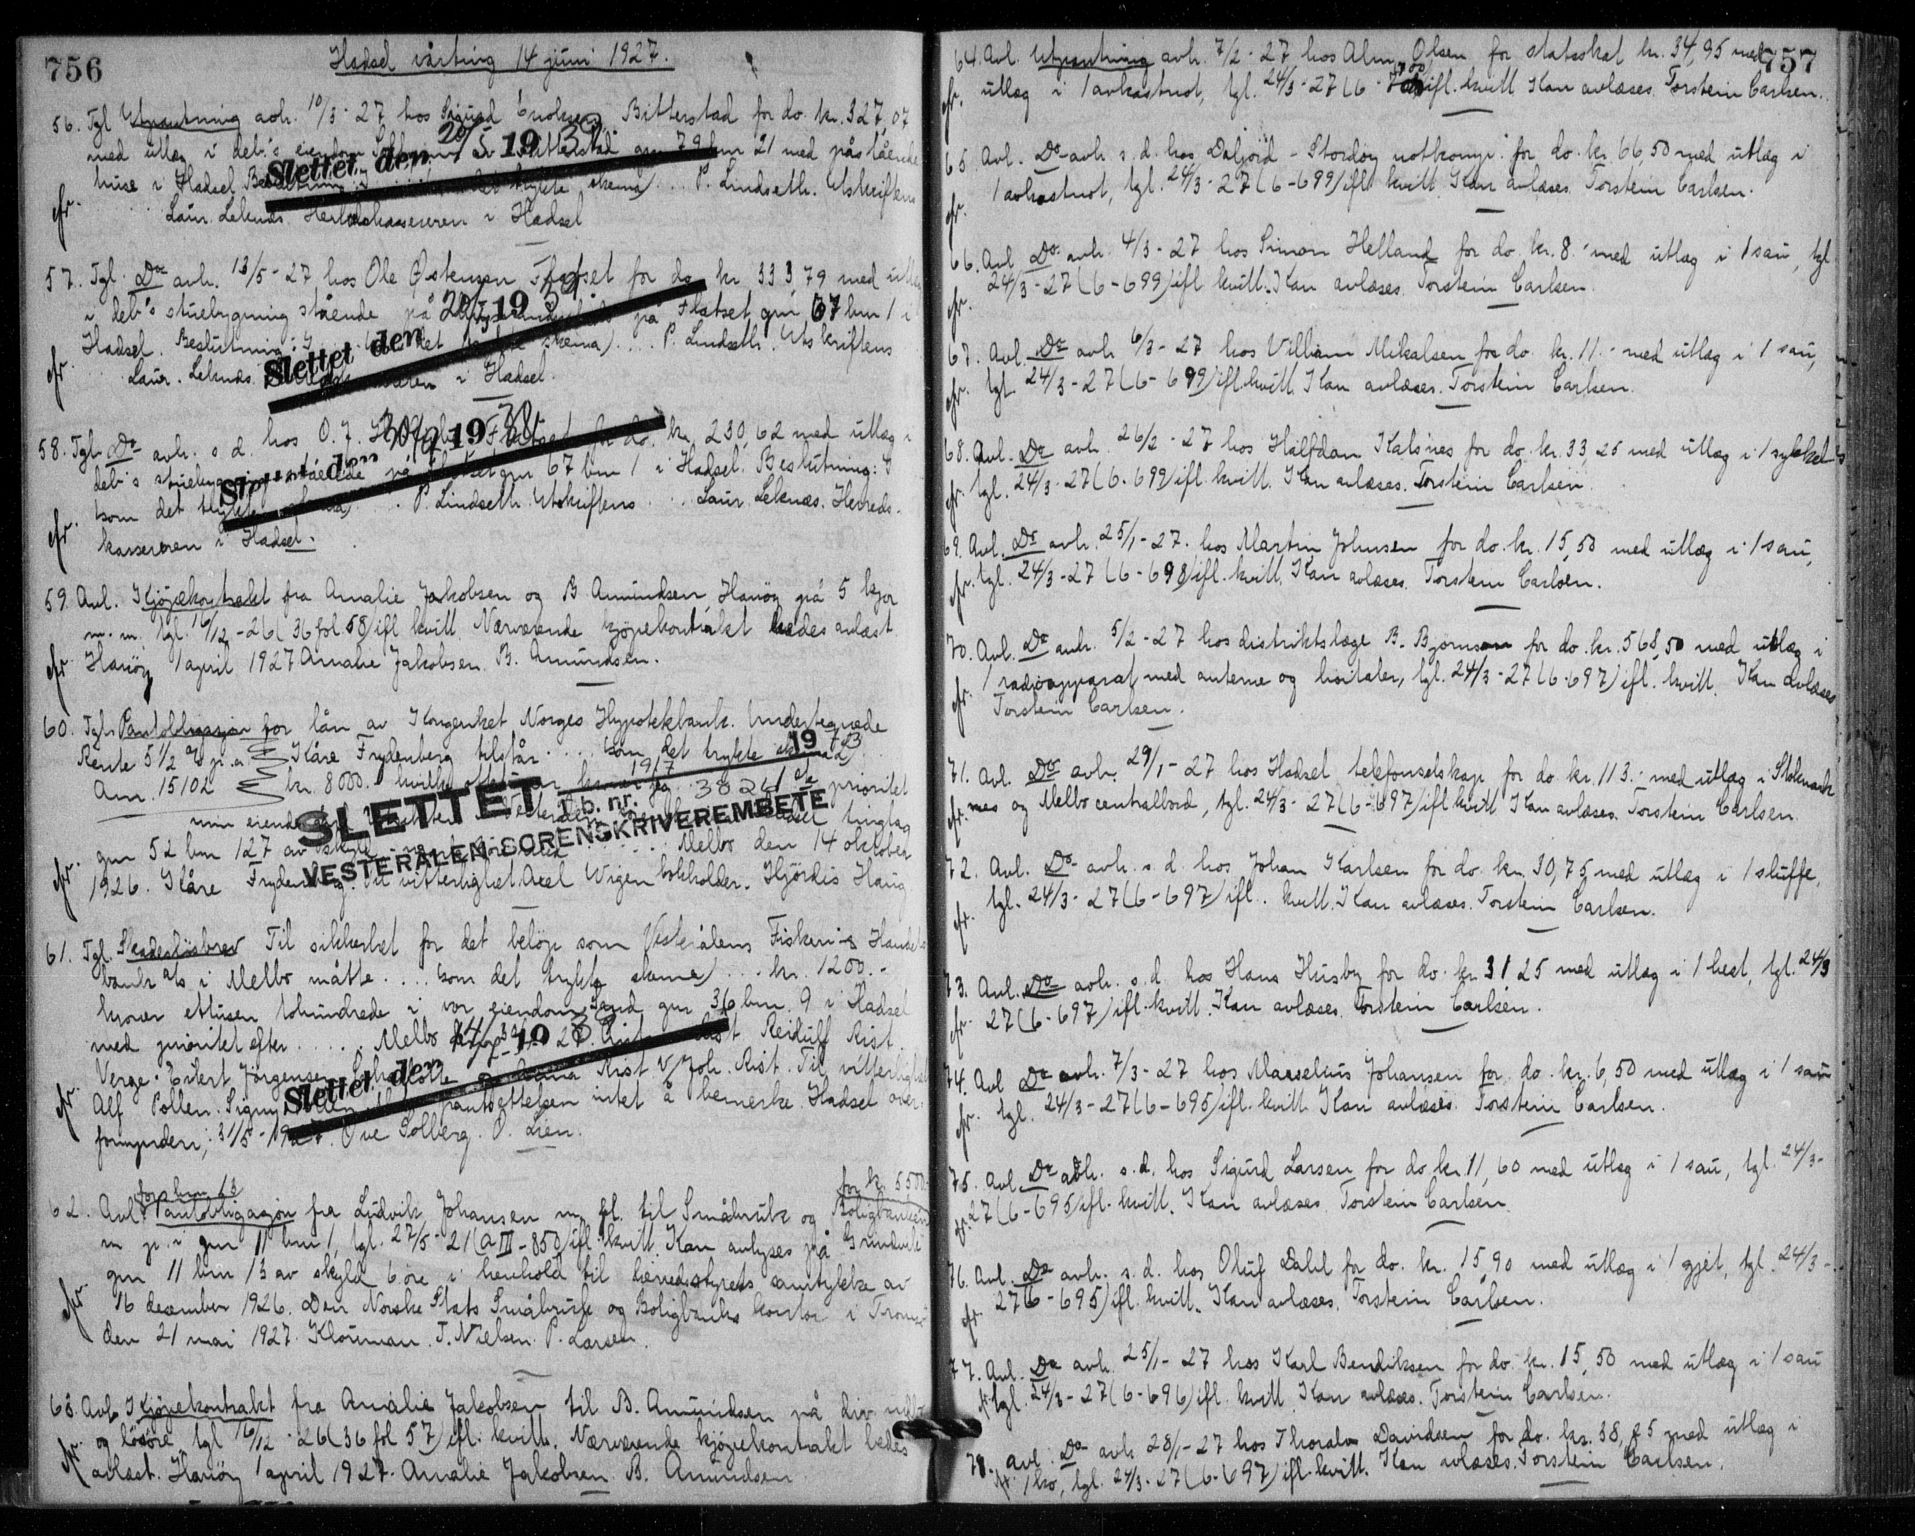 756
Hadsel vårting 14 juni 1927.
56. Tgl Utpantning avh. 10/3-27 hos Sigurd Bitterstad for do. kr. 327,07
med utlæg i deb's eiendom gnr 79 bnr 21 med påstående
huse i Hadsel skema) ... P. Lindseth. Utskriftens
efr. ... Laur. Leknes Herredskasserer i Hadsel
Slettet den 20/5 19
57. Tgl. Do avh. 13/5-27 hos Ole Østensen Flatset for do kr. 333 79 med
i deb's stuebygning stående på på Flatset gnr 67 bnr 1 i
Hadsel. Beslutning: det skema) ... P. Lindseth. Utskriftens
efr. Laur. Leknes. i Hadsel.
Slettet den 19
58. Tgl. Do avh. s. d. hos O. J. for do. kr. 230,62 med utlæg i
deb's stuebygning stående på gnr 67 bnr 1 i Hadsel. Beslutning: I
(som det trykte skema) ... P. Lindseth. Utskriftens .... Laur. Leknes. Herreds-
efr. kassereren i Hadsel.
Slettet den 19
59. Avl. Kjøpekontrakt fra Amalie Jakobsen og B. Amundsen, Hanøy på 5 kjør
m. m. tgl. 16/12-26 (36 fol. 58) ifl kvitt. Nærværende kjøpekontrakt bedes avlæst.
efr Hanøy 1 april 1927 Amalie Jakobsen. B. Amundsen.
60. Tgl. Pantobligasjon for lån av Kongeriket Norges Hypotekbank. Undertegnede
Rente 5 1/2 % p. a. Kåre Frydenberg tilstår .... (som det trykte skema)
Am. 15102 kr. 8000.- prioritet
min eiendom tinglag
gnr 52 bnr 127 av skyld .... Melbo den 14 oktober
efr. 1926. Kåre Frydenberg. Til vitterlighet: Axel Wigen bokholder. Hjördis Haug
SLETTET 19
T.b. nr. 3826
VESTERÅLEN SORENSKRIVEREMBETE
61. Tgl. Skadesløsbrev Til sikkerhet for det beløp som Vesterålens Fiskeri- & Handels
bank A/s i Melbo måtte .... (som det trykte skema) ... kr. 1200.-
kroner ettusen tohundrede i vor eiendom Sand gnr 36 bnr. 9 i Hadsel
med prioritet efter ..... Melbo 27. Rist Reidulf Rist.
Verge. Eilert Jörgensen Rist v/ Joh. Rist. Til vitterlighet
efr. Alf Pollen. Signy Pollen pantsettelsen intet å bemerke. Hadsel over-
formynderi, 31/5-1927. Ove Solberg. O. Lien.
Slettet den 19
for bnr 13 for kr 5500
62. Avl. Pantobligasjon fra Ludvik Johansen m. fl. til Småbruk og Boligbanken
m. p. i gnr 11 bnr 1, tgl. 27/5-21 (a III - 850) ifl. kvitt. Kan avlyses på
gnr 11 bnr 13 av skyld 6 øre i henhold til herredstyrets samtykke av
efr 16 desember 1926. Den Norske Stats Småbruk og Boligbanks kontor i Tromsø
den 21 mai 1927. Klouman. J. Nielsen. P. Larsen.
63. Avl. Kjøpekontrakt fra Amalie Jakobsen til B. Amundsen på div.
og løsøre, tgl 16/12-26 (36 fol 57) ifl. kvitt. Nærværende kjøpekontrakt bedes
efr. avlæst. Hanøy 1 april 1927. Amalie Jakobsen. B. Amundsen
757
64. Avl. Utpantning avh. 7/2-27 hos Alm. Olsen for statsskat kr. 34,95 med
efr. utlæg i 1 avkastnot, tgl. 24/3-27 (6-700) ifl. kvitt. Kan avlæses. Torstein Carlsen.
65. Avl. Do avh. s. d. hos Daljord - Stordøy notkompi. for do. kr. 66,50 med utlæg i
efr. 1 avkastnot, tgl. 24/3-27 (6-699) ifl. kvitt. Kan avlæses. Torstein Carlsen.
66. Avl Do avh. 4/3-27 hos Simon Helland for do. kr. 8.- med utlæg i 1 sau, tgl.
efr. 24/3-27 (6-699) ifl. kvitt. Kan avlæses. Torstein Carlsen.
67. Avl. Do avh 6/3-27 hos Villiam Mikalsen for do. kr. 11.- med utlæg i 1 sau,
efr. tgl. 24/3-27 (6-699) ifl. kvitt. Kan avlæses. Torstein Carlsen.
68. Avl. Do avh. 26/2-27 hos Halfdan Kalsnes for do. kr. 33,25 med utlæg i 1 sykkel
efr. tgl. 24/3-27 (6-699) ifl. kvitt. Kan avlæses. Torstein Carlsen.
69. Avl. Do avh. 25/1-27. hos Martin Johnsen for do. kr. 15,50 med utlæg i 1 sau,
efr. tgl. 24/3-27 (6-698) ifl. kvitt. Kan avlæses. Torstein Carlsen.
70. Avl. Do avh. 5/2-27 hos distriktslæge B. Bjørnson for do. kr. 568,50 med utlæg i
1 radioapparat med antene og høitaler, tgl. 24/3-27 (6-697) ifl. kvitt. Kan avlæses
efr. Torstein Carlsen.
71. Avl. Do avh. 29/1-27 hos Hadsel telefonselskap for do. kr. 113.- med utlæg i Stokmark
efr. nes og Melbo centralbord, tgl. 24/3-27 (6-697) ifl kvitt Kan avlæses. Torstein Carlsen.
72. Avl. Do avh. s. d. hos Johan Karlsen for do. kr. 30,75 med utlæg i 1 sluffe,
efr. tgl. 24/3-27 (6-697) ifl. kvitt. Kan avlæses. Torstein Carlsen.
73. Avl. Do avh. s. d. hos Hans Husby for do. kr. 31 25 med utlæg i 1 hest, tgl. 24/3
efr. 27 (6-697) ifl. kvitt. Kan avlæses. Torstein Carlsen.
74. Avl Do avh. 7/3-27 hos Marselius Johansen for do. kr. 6,50 med utlæg i 1 sau
efr. tgl. 24/3-27 (6-695) ifl. kvitt. Kan avlæses. Torstein Carlsen.
75. Avl. Do avh. s. d. hos Sigurd Larsen for do. kr. 11,60 med utlæg i 1 sau, tgl. 24/3-
efr. 27 (6-695) ifl. kvitt. Kan avlæses. Torstein Carlsen
76. Avl. Do avh. s. d. hos Oluf Dahl for do. kr. 15,90 med utlæg i 1 gjet, tgl. 24/3-
efr 27 (6-695) ifl. kvitt. Kan avlæses. Torstein Carlsen.
77. Avl. Do avh. 25/1-27 hos Karl Bendiksen for do. kr. 15,50 med utlæg i 1 sau
efr. tgl. 24/3-27 (6-696) ifl. kvitt. Kan avlæses. Torstein Carlsen.
78. avl. Do avh 28/1-27 hos Thoralv Davidsen for do. kr. 38,25 med utlæg i
efr. 1 ko, tgl. 24/3-27 (6-697) ifl. kvitt. Kan avlæses. Torstein Carlsen.